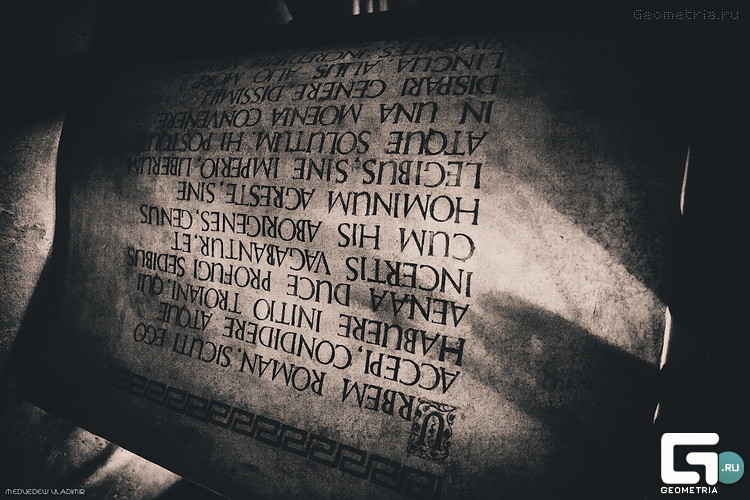 URBEM ROMAN, SICUTI EGO
ACCEPI, CONDIDERE ATQUE
HABUERE INITIO TROIANI, QUI
AENAA DUCE PROFUGI SEDIBUS
INCERTIS VAGABANTUR, ET
CUM HIS ABORIGENES, GENUS
HOMINUM AGRESTE, SINE
LEGIBUS, SINE IMPERIO, LIBERUM
ATQUE SOLUTUM. HI
IN UNA MOENIA CONVENERE
DISPARI GENERE DISSIMILI
LINGUA, ALIUS ALIO MORE
VIVENTES,
Geometria.ru
MEDVEDEW VLADIMIR
G.RU
GEOMETRIA